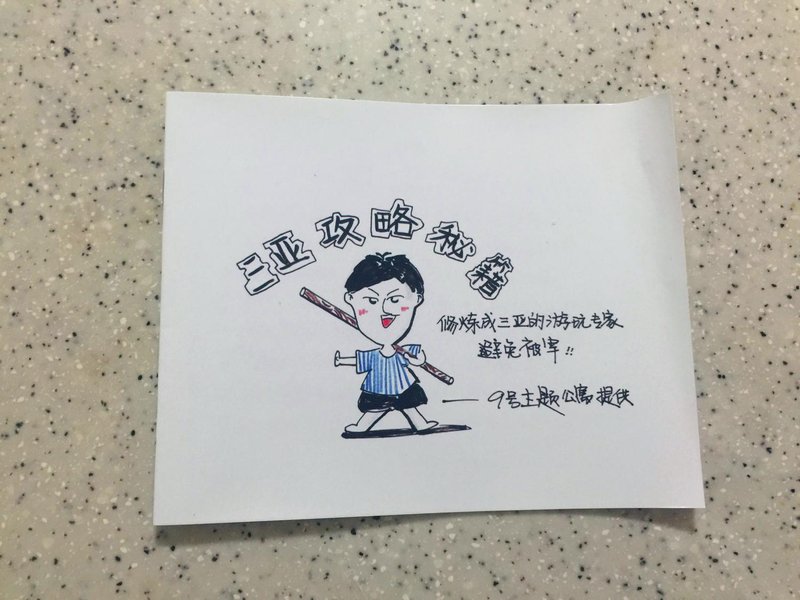 三亚攻略秘籍
修炼成三亚的游玩专家
避免被宰!!
——9号主题公寓提供